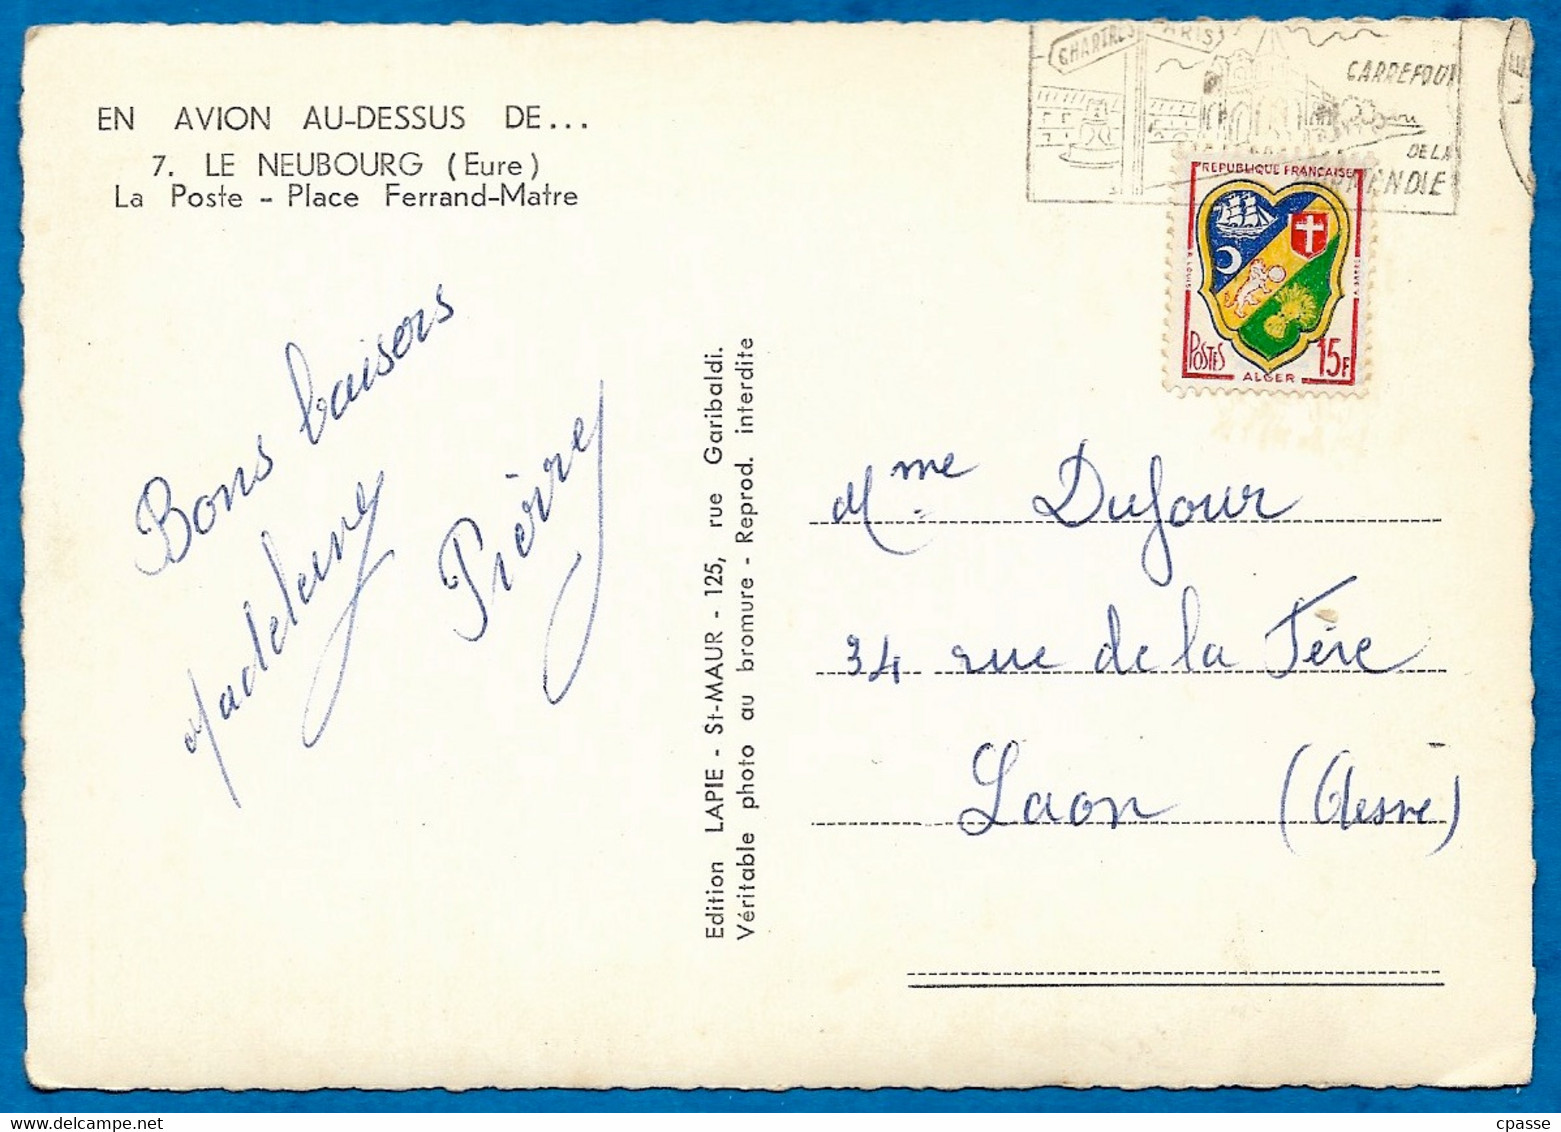 EN AVION AU-DESSUS DE...
7. LE NEUBOURG (Eure)
La Poste - Place Ferrand-Matre
Bons baisers
Madeleine
Pierre
Edition LAPIE - St-MAUR - 125, rue Garibaldi.
Véritable photo au bromure - Reprod. interdite
CHARTRES
PARIS
CARREFOUR
DE LA
NORMANDIE
REPUBLIQUE FRANÇAISE
POSTES
15F
ALGER
Mme Dufour
34 rue de la Fère
Laon (Aisne)
cpasse